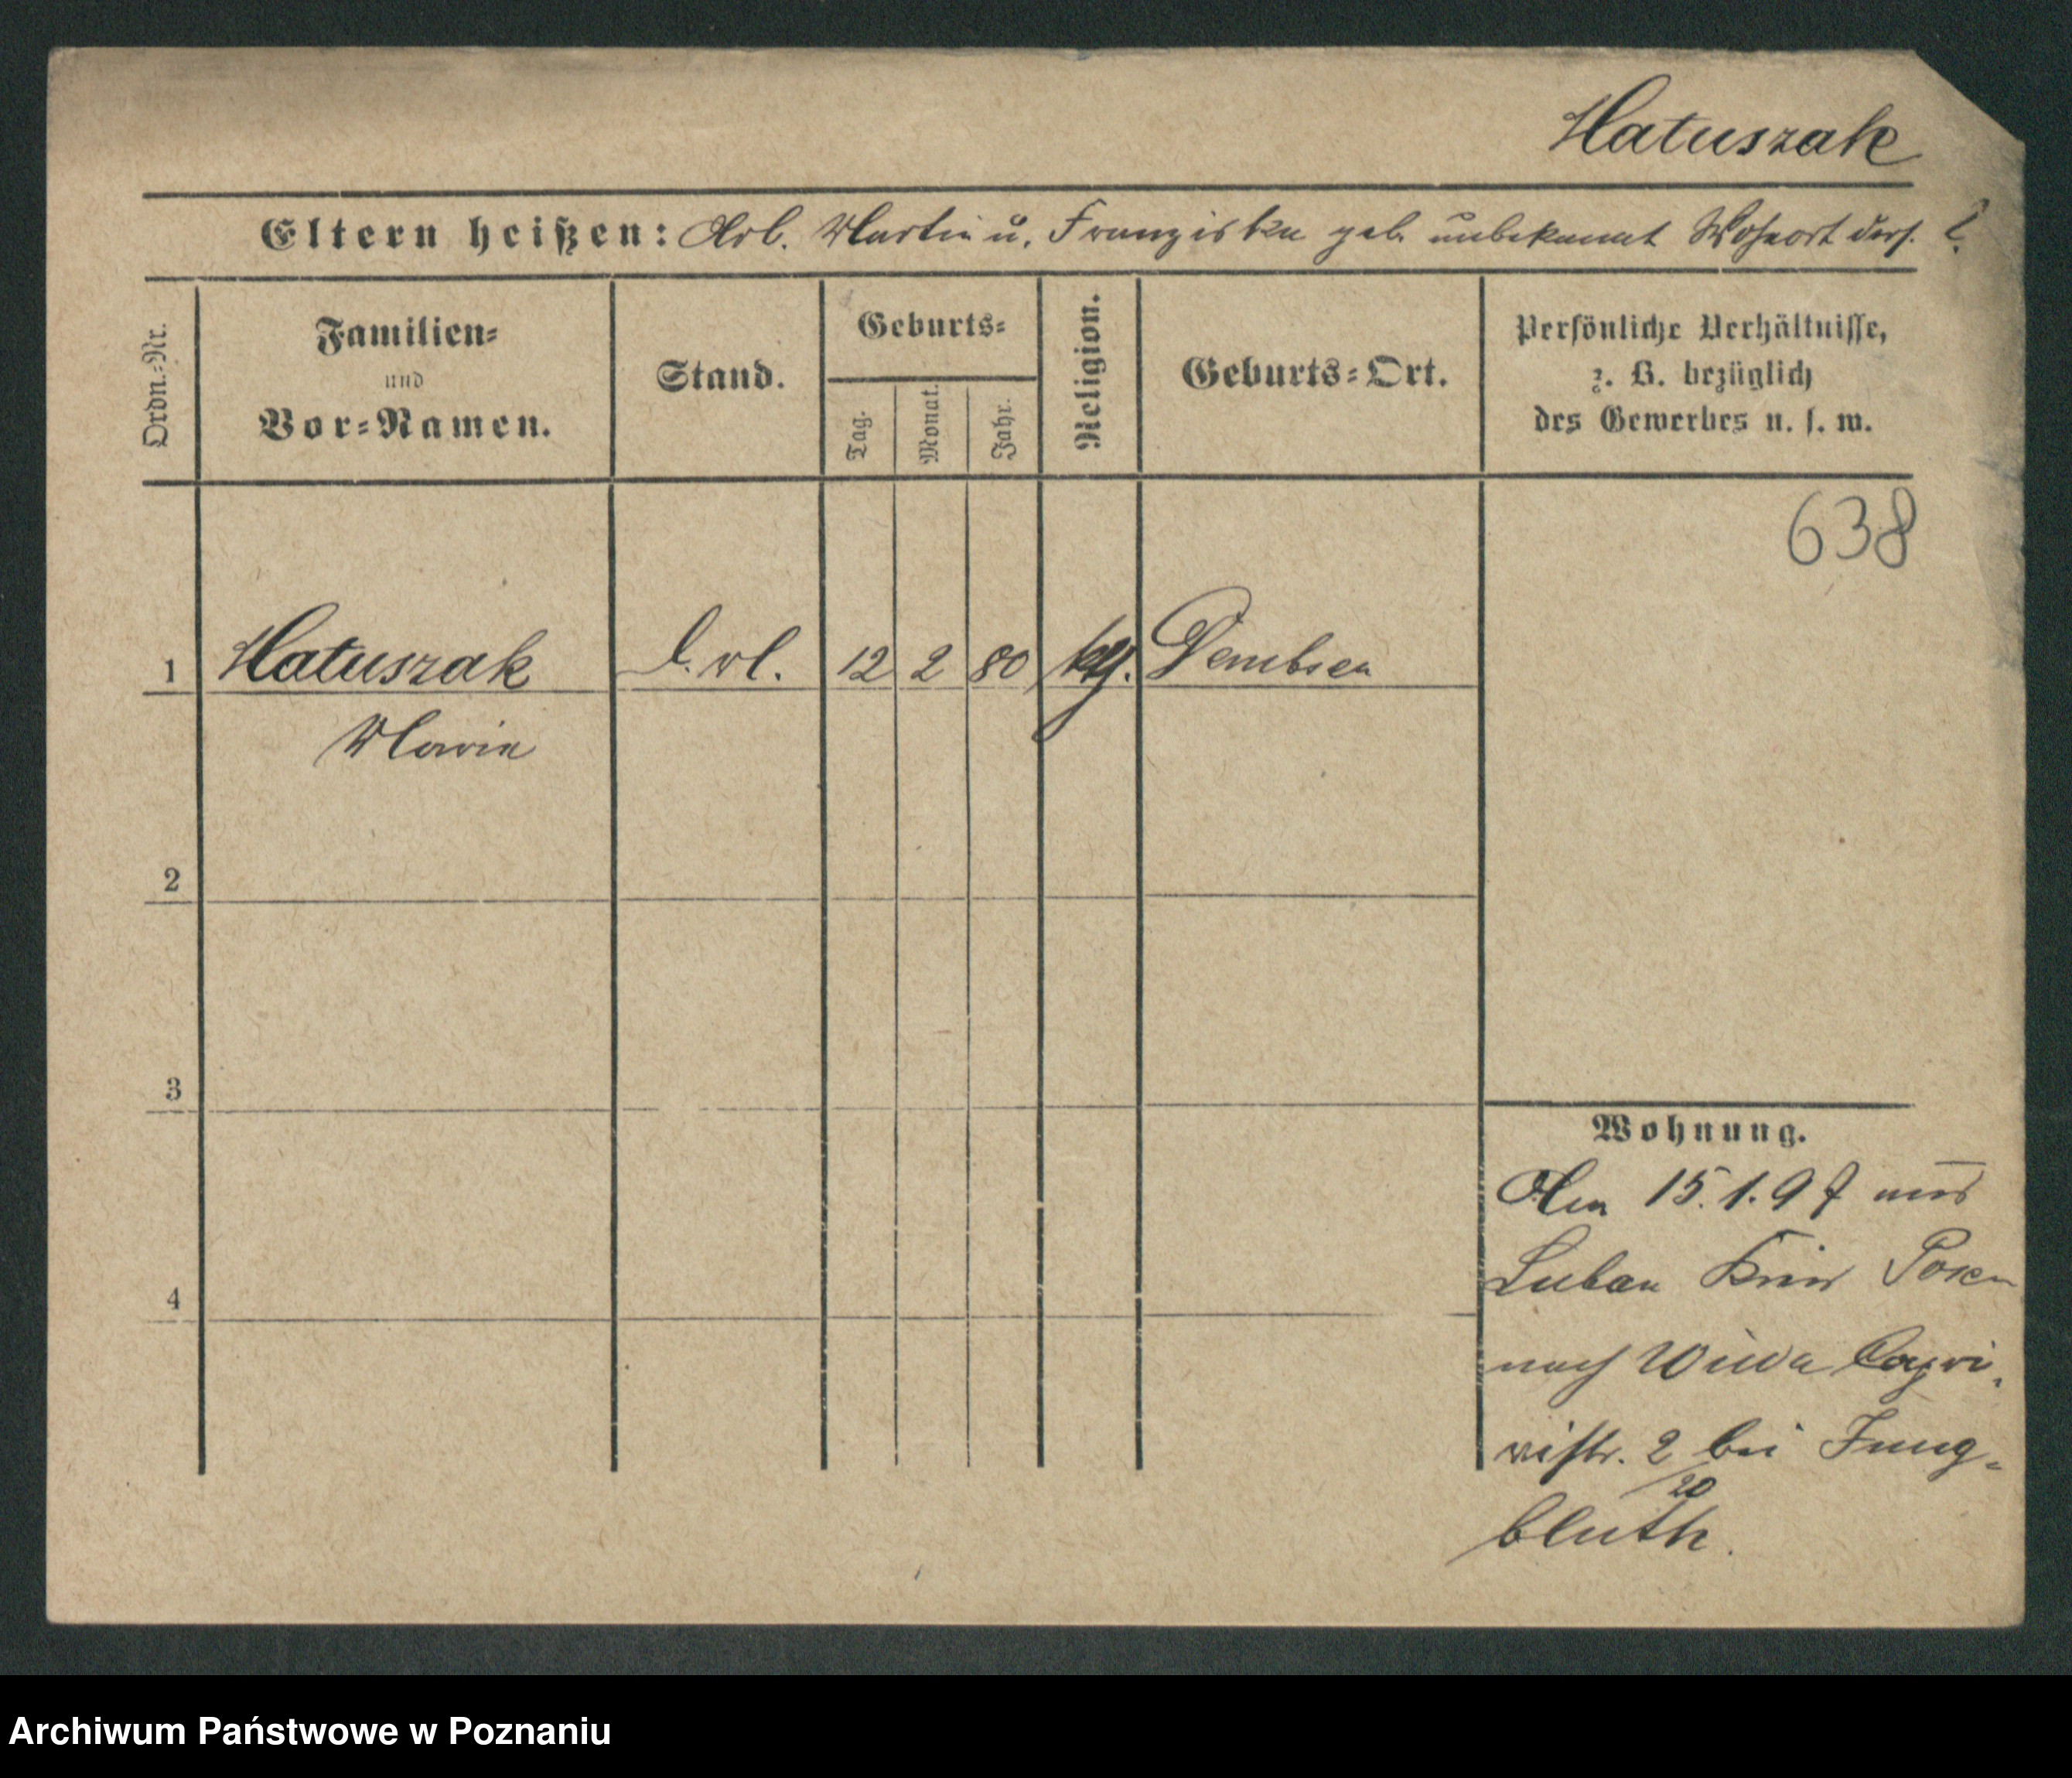 Matuszak
Eltern heißen: Arb. Martin u. Franziska geb. unbekannt Wohnort ders. ?
Ordn.-Nr.
Familien-
und
Vor-Namen.
Stand.
Geburts-
Tag.
Monat.
Jahr.
Religion.
Geburts-Ort.
Persönliche Verhältnisse,
z. B. bezüglich
des Gewerbes u. s. w.
638
1 Matuszak 12 2 80 kth. Dembsen
Maria
2
3
4
Wohnung.
Am 15.1.97 aus
Luban Kreis Posen
nach Wilda Capri-
vistr. 2 bei Jung-
20
bluth.
Archiwum Państwowe w Poznaniu